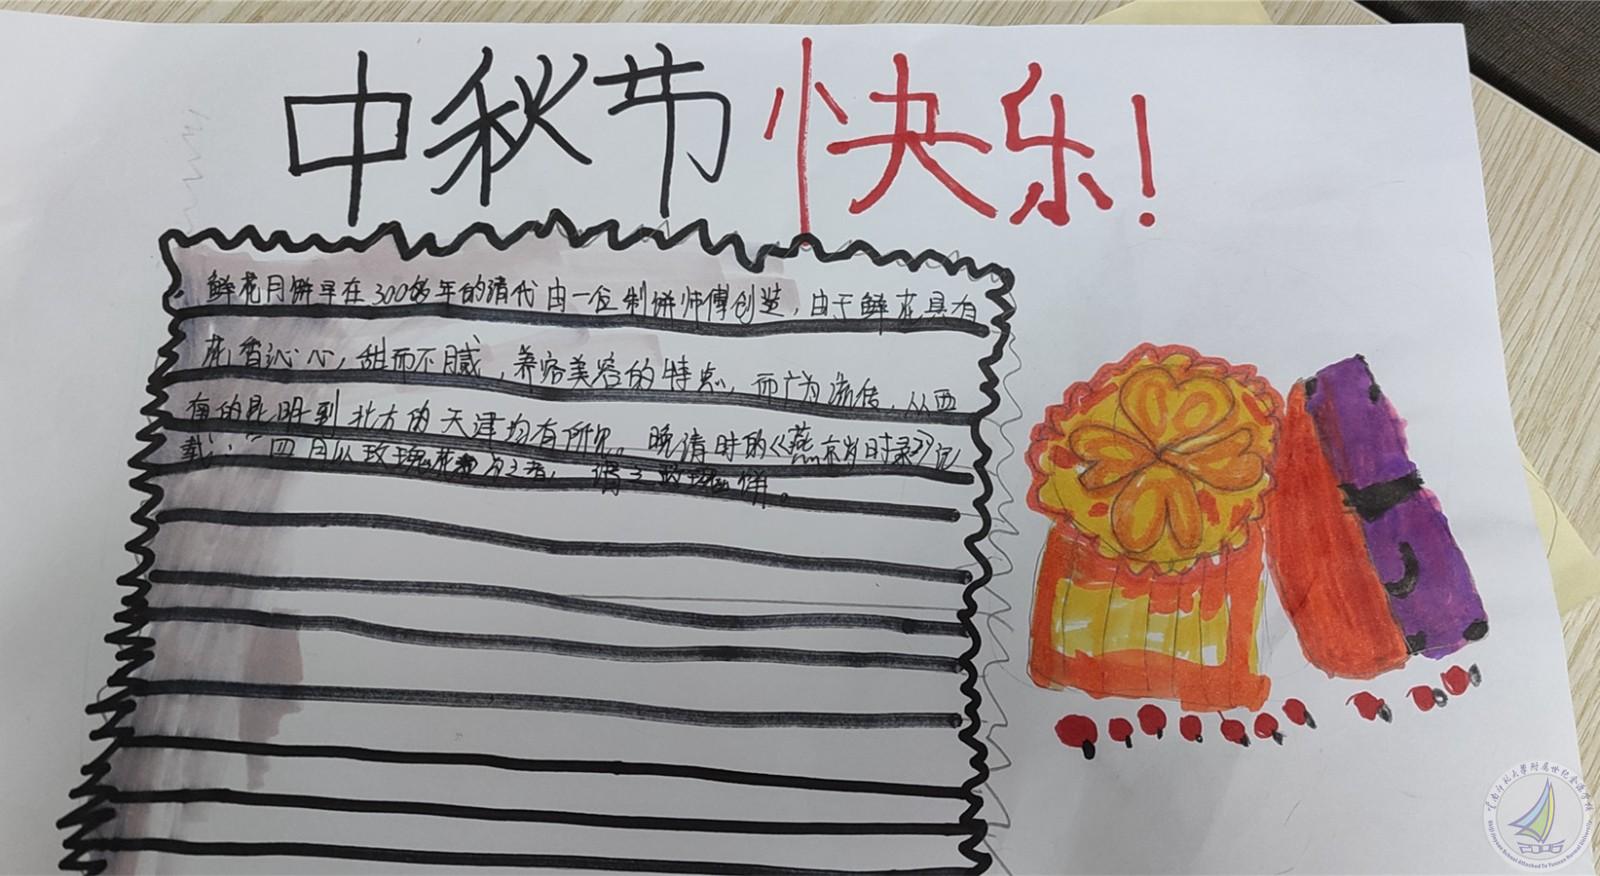 中秋节快乐!
鲜花月饼早在300多年的清代由一位制饼师傅创造,由于鲜花具有
花香沁心,甜而不腻,养容美容的特点,而广为流传,从西
南的昆明到北方的天津均有所见。晚清时的《燕京岁时录》记
载:"四月以玫瑰花为之者,谓之玫瑰饼。